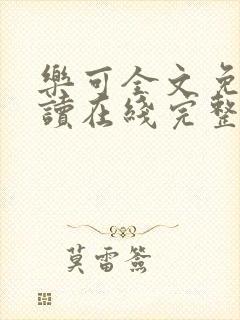 樂可全文免
讀在綫完整
莫雷簽